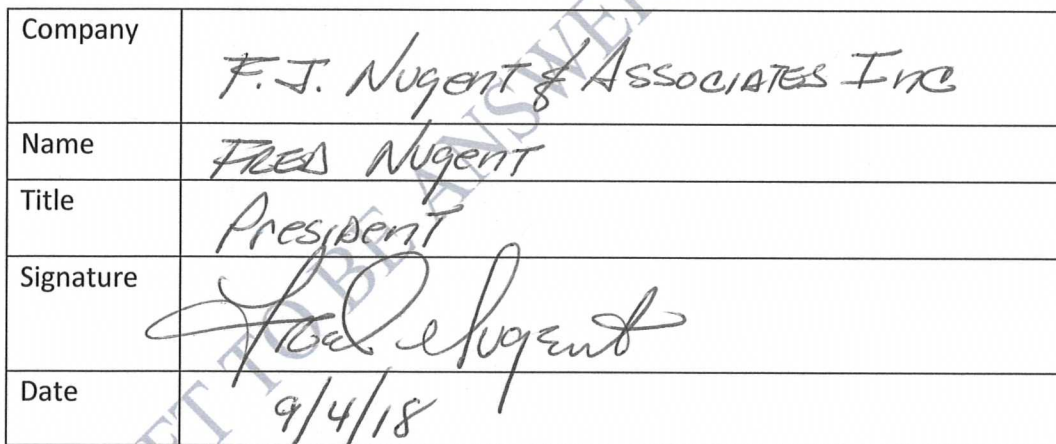 Company F.J. Nugent & Associates Inc
Name Fred Nugent
Title President
Signature Fred Nugent
Date 9/4/18
ET TO BE ANSWE